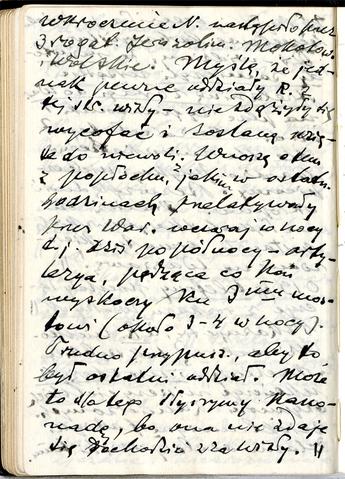 wkroczenie N. nastąpiło przez
3 rogat. Jerozolim. Mokotow.
i Wolskie. Myślę, że jed-
nak pewne oddziały R. z
tej str. Wisły – nie zdążyły się
wycofać i zostaną wzię-
te do niewoli. Wnoszę o tem
z popłochu, z jakim w ostatn.
godzinach przelatywały
przez War. wczoraj w nocy
t.j. dziś po północy – arty-
lerya, pędząca co koń
wyskoczy ku 3 mu mos-
towi (około 3-4 w nocy).
Trudno przypusz., aby to
był ostatni oddział. Może
to dlatego słyszymy kano-
nadę, bo ona nie zdaje
się dochodzić zza Wisły.